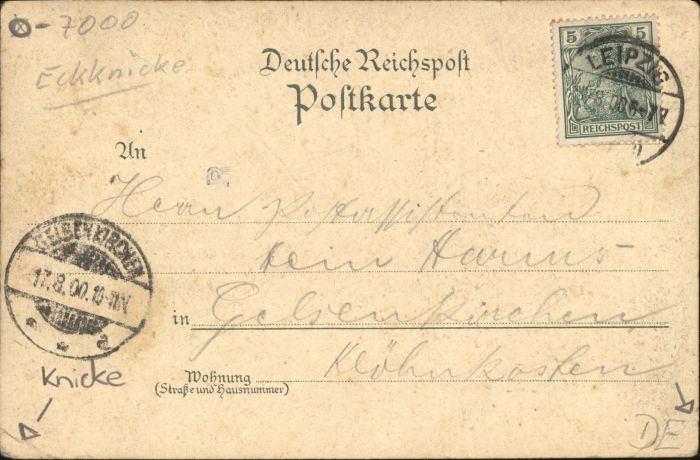 0-7000
Eckknicke
Deutsche Reichspost
Postkarte
5 5
REICHSPOST
LEIPZIG
An
Herrn Postassistenten
Hein Harms
GELSENKIRCHEN
17.8.00.10-11V.
a
in Gelsenkirchen
Wohnung
(Straße und Hausnummer)
Knicke
DE